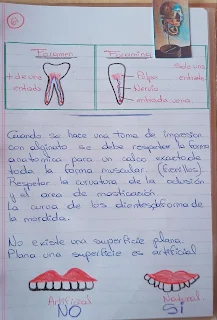 61
Foramen
Foramina
+ de una
entrada
Solo una
entrada
Pulpa
Nervio
entrada
Cuando se hace una toma de impresion
con alginato se debe respetar la forma
anatomica para un calco exacto de
toda la forma muscular (frenillos).
Respetar la curvatura de la oclusión
y el area de masticación
La curva de los dientes da forma de
la mordida.
No existe una superficie plana.
Plana una superficie es artificial
Artificial
NO
Natural
SI